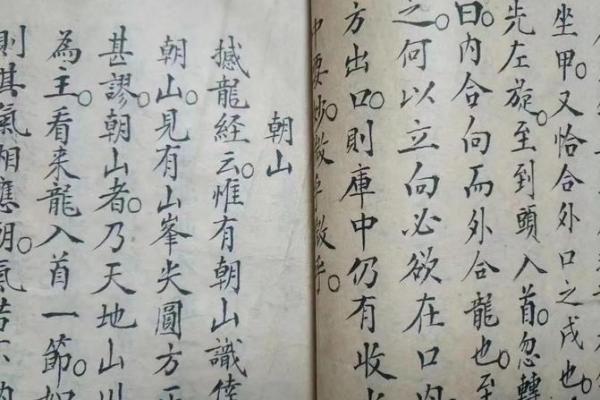 坐甲又恰合外口之戌也
先左旋至到頭入首忽轉
曰内合向而外合龍也至
之何以立向必欲在口内
方出口則庫中仍有收
中要
朝山
撼龍經云惟有朝山識
朝山見有山峯尖圓方
甚謬朝山者乃天地山川
為王看来龍入首一節如
則其氣相應朝氣若不